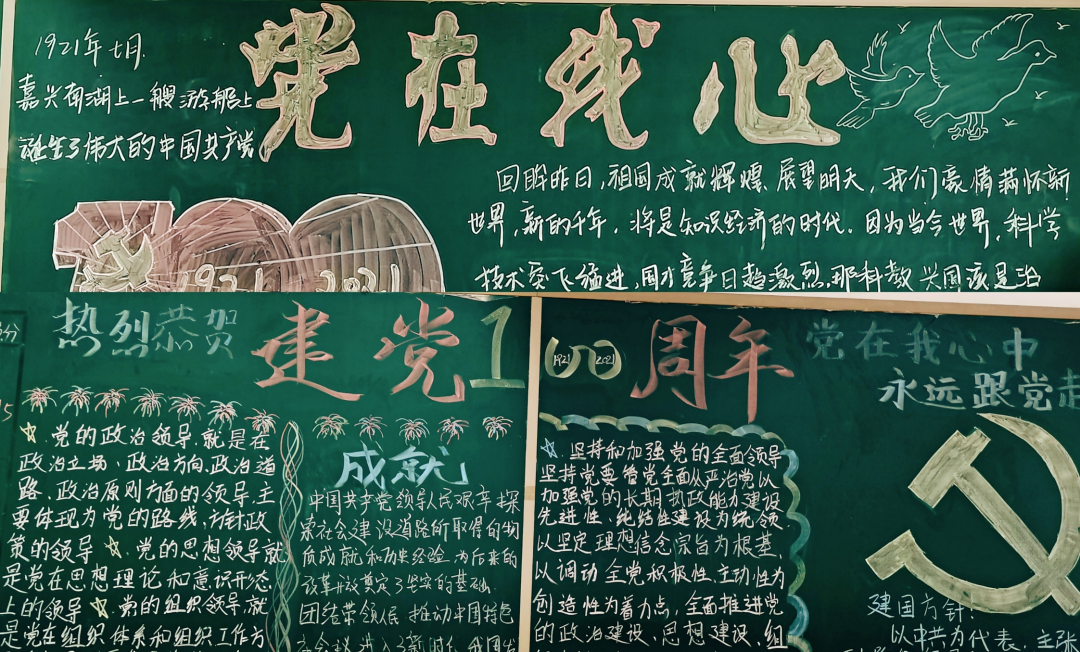 党在我心
1921年七月.
嘉兴南湖上一艘游船上
诞生了伟大的中国共产党
1921 2021
回眸昨日,祖国成就辉煌 展望明天,我们豪情满怀新
世界,新的千年,将是知识经济的时代。因为当今世界,科学
技术突飞猛进,国力竞争日趋激烈,那科教兴国该是治
热烈恭贺
建党100周年
1921 2021
☆.党的政治领导.就是在
政治立场、政治方向、政治道
路、政治原则方面的领导.主
要体现为党的路线,方针政
策的领导 ☆.党的思想领导就
是党在思想理论和意识形态
上的领导 ☆.党的组织领导,就
是党在组织体系和组织工作方
成就
中国共产党领导人民艰辛探
索社会建设道路所取得的物
质成就和历史经验,为后来的
改革开放奠定了坚实的基础.
团结带领人民 推动中国特色
入了新时代
☆.坚持和加强党的全面领导
坚持党要管党全面从严治党以
加强党的长期执政能力建设
先进性、纯结性建设为统领
以坚定理想信念宗旨为根基,
以调动全党积极性、主动性为
创造性为着力点,全面推进党
的政治建设、思想建设、组
党在我心中
永远跟党走
建国方针:
以中共为代表,主张